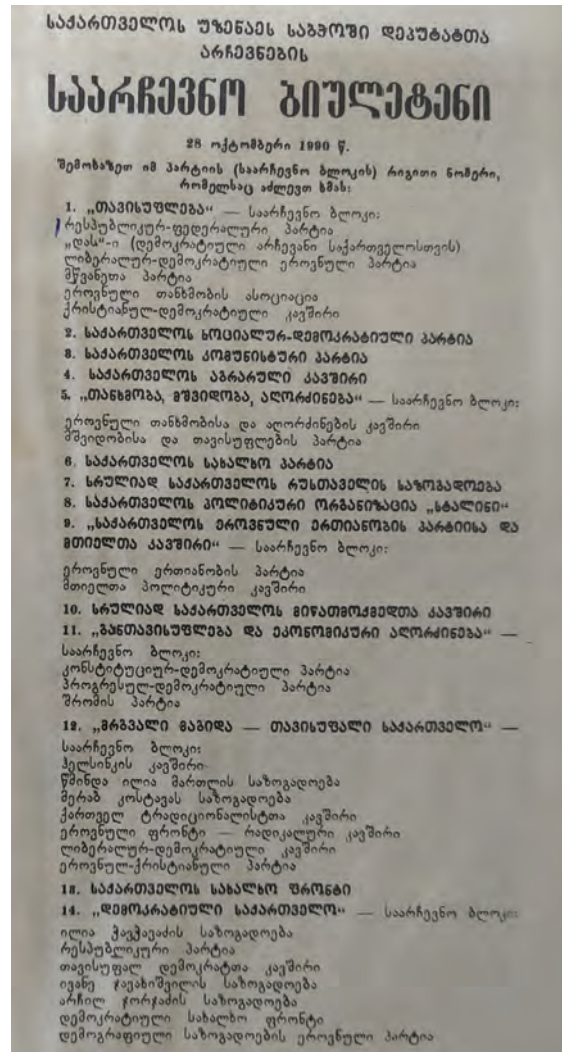 საქართველოს უზენაეს საბჭოში დეპუტატთა
არჩევნების
საარჩევნო ბიულეტენი
28 ოქტომბერი 1990 წ.
შემოხაზეთ იმ პარტიის (საარჩევნო ბლოკის) რიგითი ნომერი,
რომელსაც აძლევთ ხმას:
1. „თავისუფლება“ — საარჩევნო ბლოკი:
რესპუბლიკურ-ფედერალური პარტია
„დას“-ი (დემოკრატიული არჩევანი საქართველოსთვის)
ლიბერალურ-დემოკრატიული ეროვნული პარტია
მწვანეთა პარტია
ეროვნული თანხმობის ასოციაცია
ქრისტიანულ-დემოკრატიული კავშირი
2. საქართველოს სოციალურ-დემოკრატიული პარტია
3. საქართველოს კომუნისტური პარტია
4. საქართველოს აგრარული კავშირი
5. „თანხმობა, მშვიდობა, აღორძინება“ — საარჩევნო ბლოკი:
ეროვნული თანხმობისა და აღორძინების კავშირი
მშვიდობისა და თავისუფლების პარტია
6. საქართველოს სახალხო პარტია
7. სრულიად საქართველოს რუსთაველის საზოგადოება
8. საქართველოს პოლიტიკური ორგანიზაცია „სტალინი“
9. „საქართველოს ეროვნული ერთიანობის პარტიისა და
მთიელთა კავშირი“ — საარჩევნო ბლოკი:
ეროვნული ერთიანობის პარტია
მთიელთა პოლიტიკური კავშირი
10. სრულიად საქართველოს მიწათმოქმედთა კავშირი
11. „განთავისუფლება და ეკონომიკური აღორძინება“ —
საარჩევნო ბლოკი:
კონსტიტუციურ-დემოკრატიული პარტია
პროგრესულ-დემოკრატიული პარტია
შრომის პარტია
12. „მრგვალი მაგიდა — თავისუფალი საქართველო“ —
საარჩევნო ბლოკი:
ჰელსინკის კავშირი
წმინდა ილია მართლის საზოგადოება
მერაბ კოსტავას საზოგადოება
ქართველ ტრადიციონალისტთა კავშირი
ეროვნული ფრონტი — რადიკალური კავშირი
ლიბერალურ-დემოკრატიული კავშირი
ეროვნულ-ქრისტიანული პარტია
13. საქართველოს სახალხო ფრონტი
14. „დემოკრატიული საქართველო“ — საარჩევნო ბლოკი:
ილია ჭავჭავაძის საზოგადოება
რესპუბლიკური პარტია
თავისუფალ დემოკრატთა კავშირი
ივანე ჯავახიშვილის საზოგადოება
არჩილ ჯორჯაძის საზოგადოება
დემოკრატიული სახალხო ფრონტი
დემოგრაფიული საზოგადოების ეროვნული პარტია